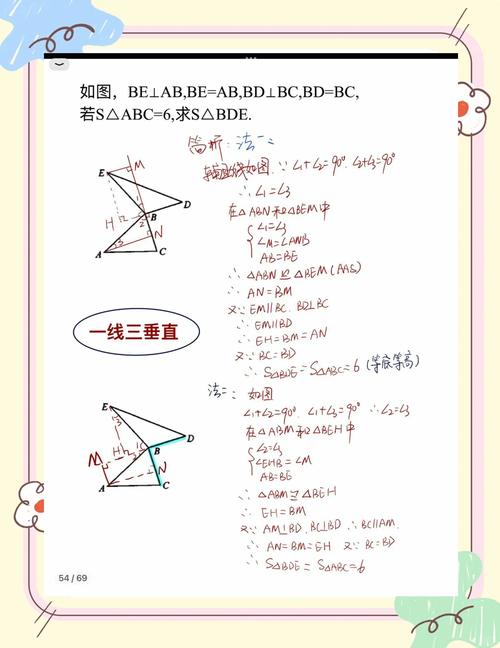 如图，BE⊥AB,BE=AB,BD⊥BC,BD=BC,
若S△ABC=6,求S△BDE.
简析：法一：
辅助线如图∵∠1+∠2=90°.∠2+∠3=90°
∴∠1=∠3
在△ABN和△BEM中
∠1=∠3
∠M=∠ANB
AB=BE
∴△ABN≌△BEM(AAS)
∴AN=BM
又∵EM∥BC.BD⊥BC
∴EM∥BD
∴EH=BM=AN
又∵BC=BD
∴S△BDE=S△ABC=6(等底等高)
E
M
1
H
B
2
D
N
3
A
C
一线三垂直
法二：如图
∠1+∠2=90°.∠1+∠3=90°∴∠2=∠3
在△ABM和△BEH中
∠2=∠3
∠EHB=∠M
AB=BE
∴△ABM≌△BEH
∴EH=BM
又∵AM⊥BD.BC⊥BD.∴BC∥AM.
∴AN=BM=EH 又∵BC=BD
∴S△BDE=S△ABC=6
E
3
D
H
1
B
M
2
N
A
C
54 / 69